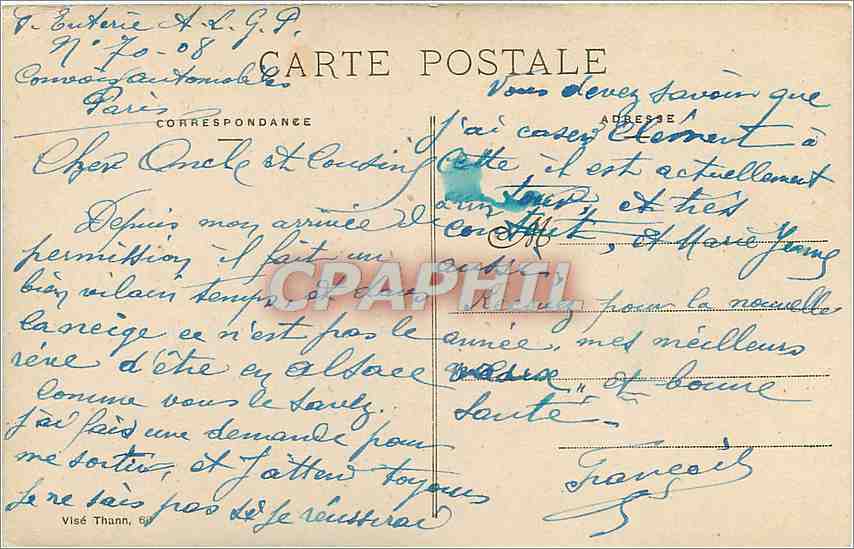 P. Enterie A.L.G.P.
N° 70-08
Convois automobiles
Paris
CARTE POSTALE
CORRESPONDANCE
ADRESSE
Cher Oncle et Cousine
Depuis mon arrivée de
permission il fait un
bien vilain temps, et dans
la neige ce n'est pas le
rêve d'être en alsace
Comme vous le savez.
j'ai fais une demande pour
me sortir, et j'attend toujours
je ne sais pas si je réussirai
Vous devez savoir que
j'ai caser Clément à
Cette il est actuellement
au tour, et très
content, et Marie Jeanne
aussi.
Recevez pour la nouvelle
année, mes meilleurs
vœux, et bonne
Santé.
François
Visé Thann, 60
CPAPHIL